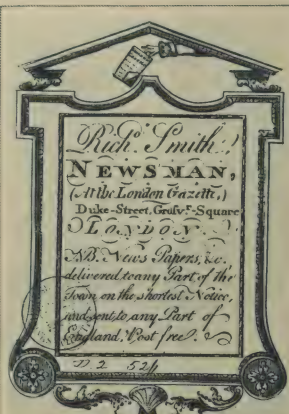 Richd. Smith,
NEWSMAN,
(At the London Gazette,)
Duke-Street, Grosvr.-Square
LONDON.
NB. News Papers, &c.
delivered to any Part of the
Town on the shortest Notice,
and sent to any Part of
England, Post free.
D 2 524